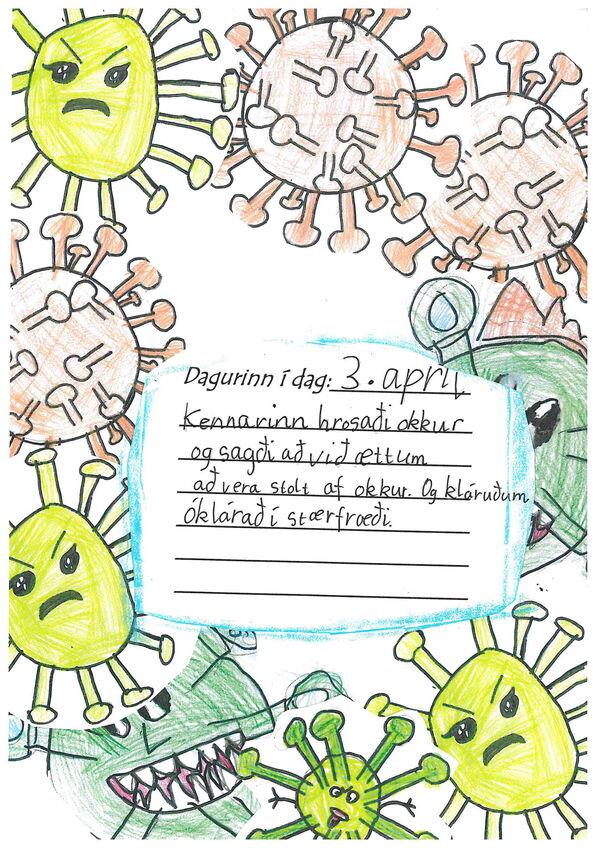 Dagurinn í dag: 3. apríl
Kennarinn hrosaði okkur
og sagði að við ættum
að vera stolt af okkur. Og kláruðum
Ókláraðí stærfræði.